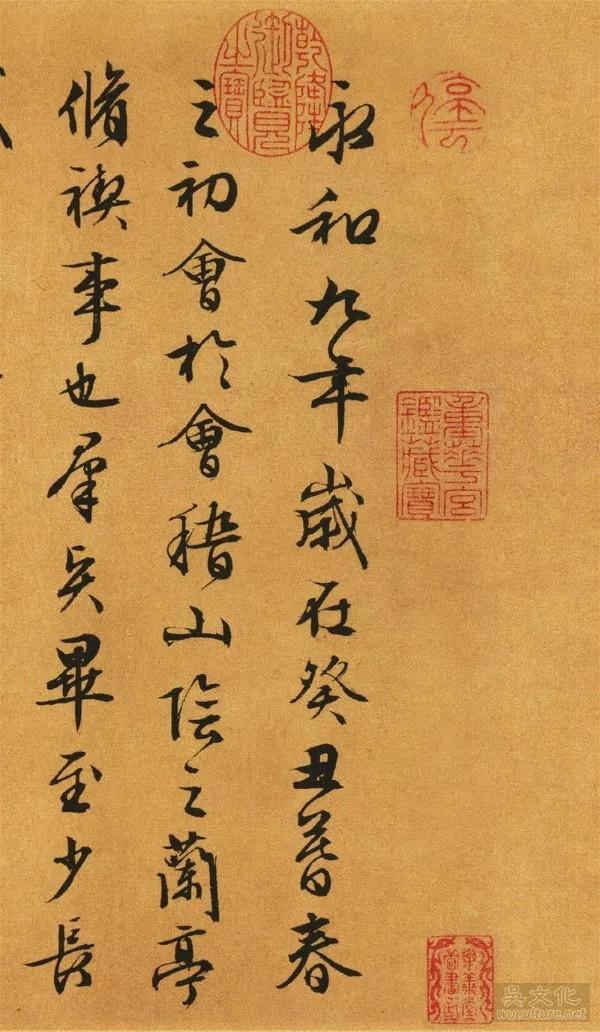 永和九年歲在癸丑暮春
之初會於會稽山陰之蘭亭
脩禊事也羣賢畢至少長
乾隆御覽之寶
重華宮鑑藏寶
樂善堂圖書記
吳文化
www.wuculture.net